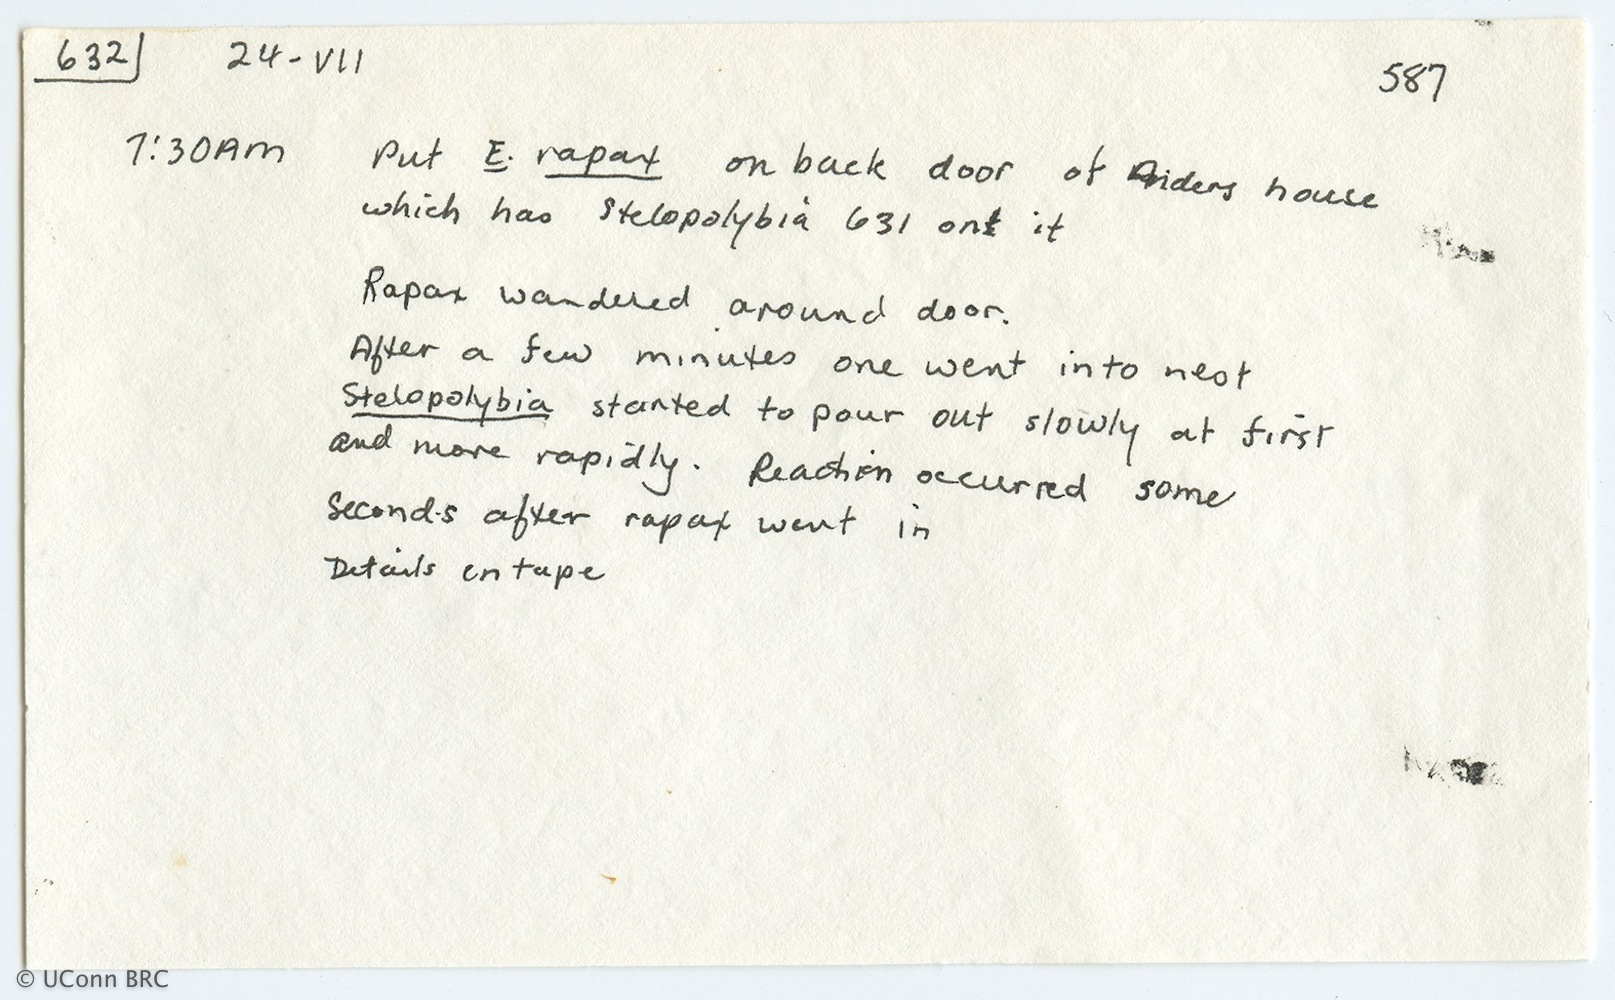 632 24-VII 587
7:30AM Put E. rapax on back door of house
which has Stelopolybia 631 on it
Rapax wandered around door.
After a few minutes one went into nest
Stelopolybia started to pour out slowly at first
and more rapidly. Reaction occurred some
Seconds after rapax went in
Details on tape
© UConn BRC